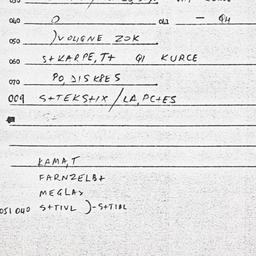 040 O 042 - GH
050 )VOLIGNE ZOK
060 S+KARPE,T+ GI KURCE
070 PO,DISKRES
009 S+TEKS+IX/LA,PC+ES
S+
KAMA,T
FARNZELB+
MEGLAX
051 040 S+TIVL )-S+TIBL